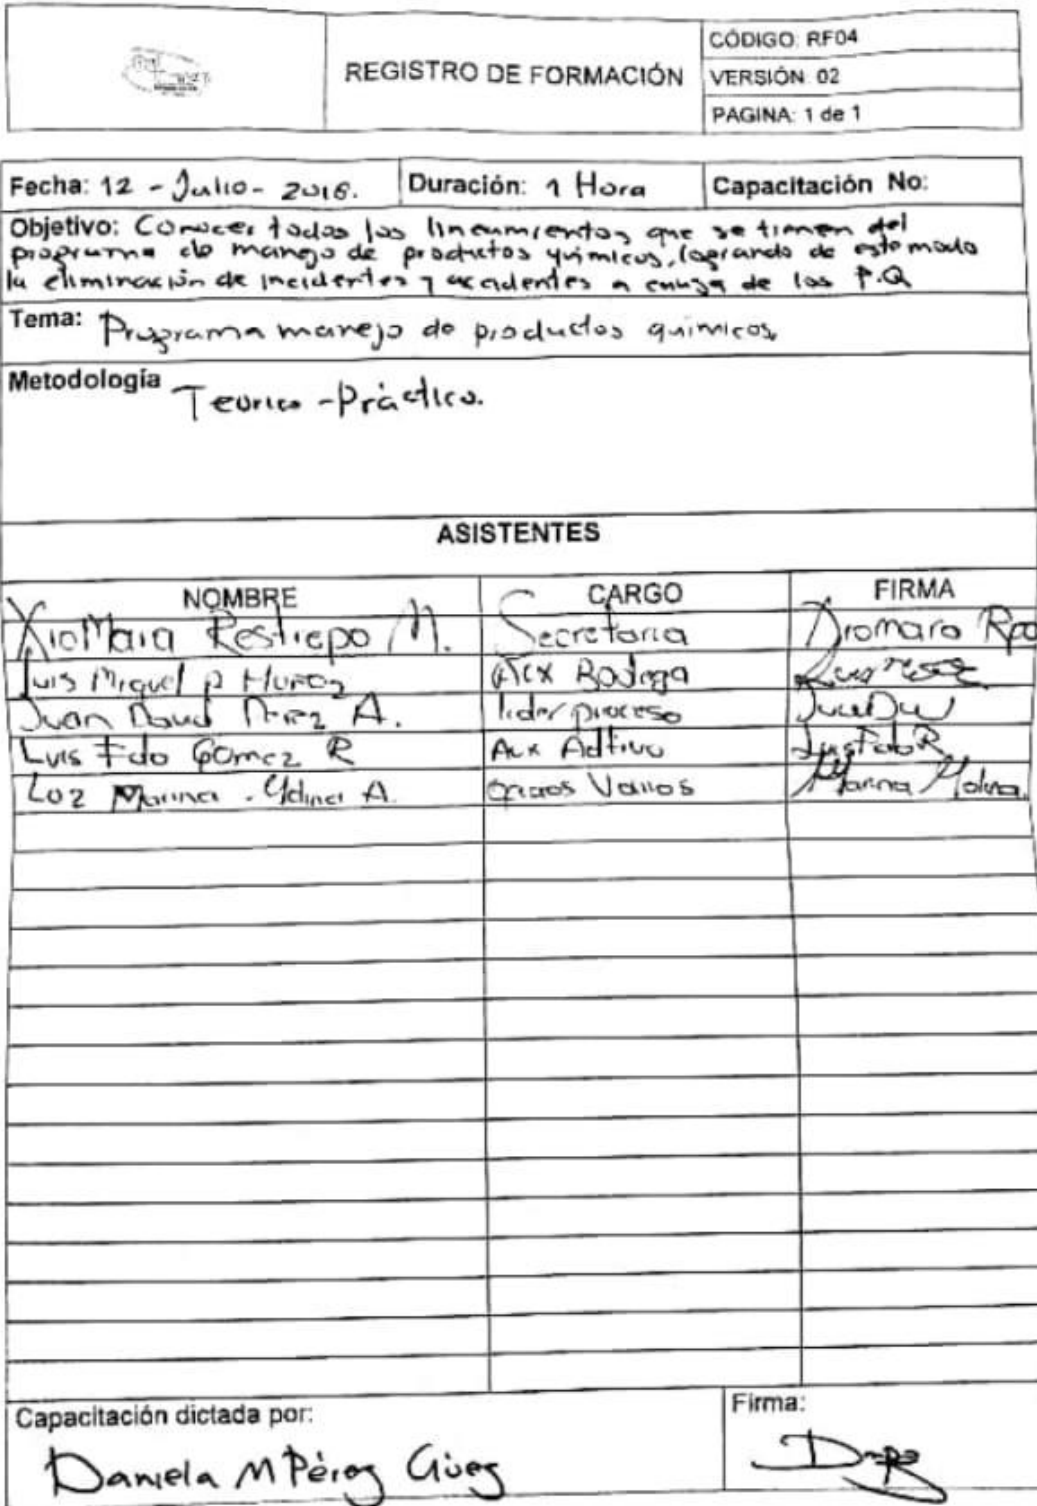 REGISTRO DE FORMACIÓN
CÓDIGO: RF04
VERSIÓN: 02
PAGINA: 1 de 1
Fecha: 12 - Julio - 2016. Duración: 1 Hora Capacitación No:
Objetivo: Conocer todos los lineamientos que se tienen del
programa de manejo de productos químicos, logrando de este modo
la eliminación de incidentes y accidentes a causa de los P.Q
Tema: Programa manejo de productos químicos.
Metodología Teorico - Práctico.
ASISTENTES
NOMBRE CARGO FIRMA
XioMara Restrepo M. Secretaria Xiomara Rpo
Luis Miguel P Muñoz Aux Bodega
Juan David Perez A. lider proceso
Luis Fdo Gomez R Aux Adtivo Luis Fdo R
Luz Marina Molina A. Oficios Varios Marina Molina
Capacitación dictada por: Firma:
Daniela M Pérez Gües